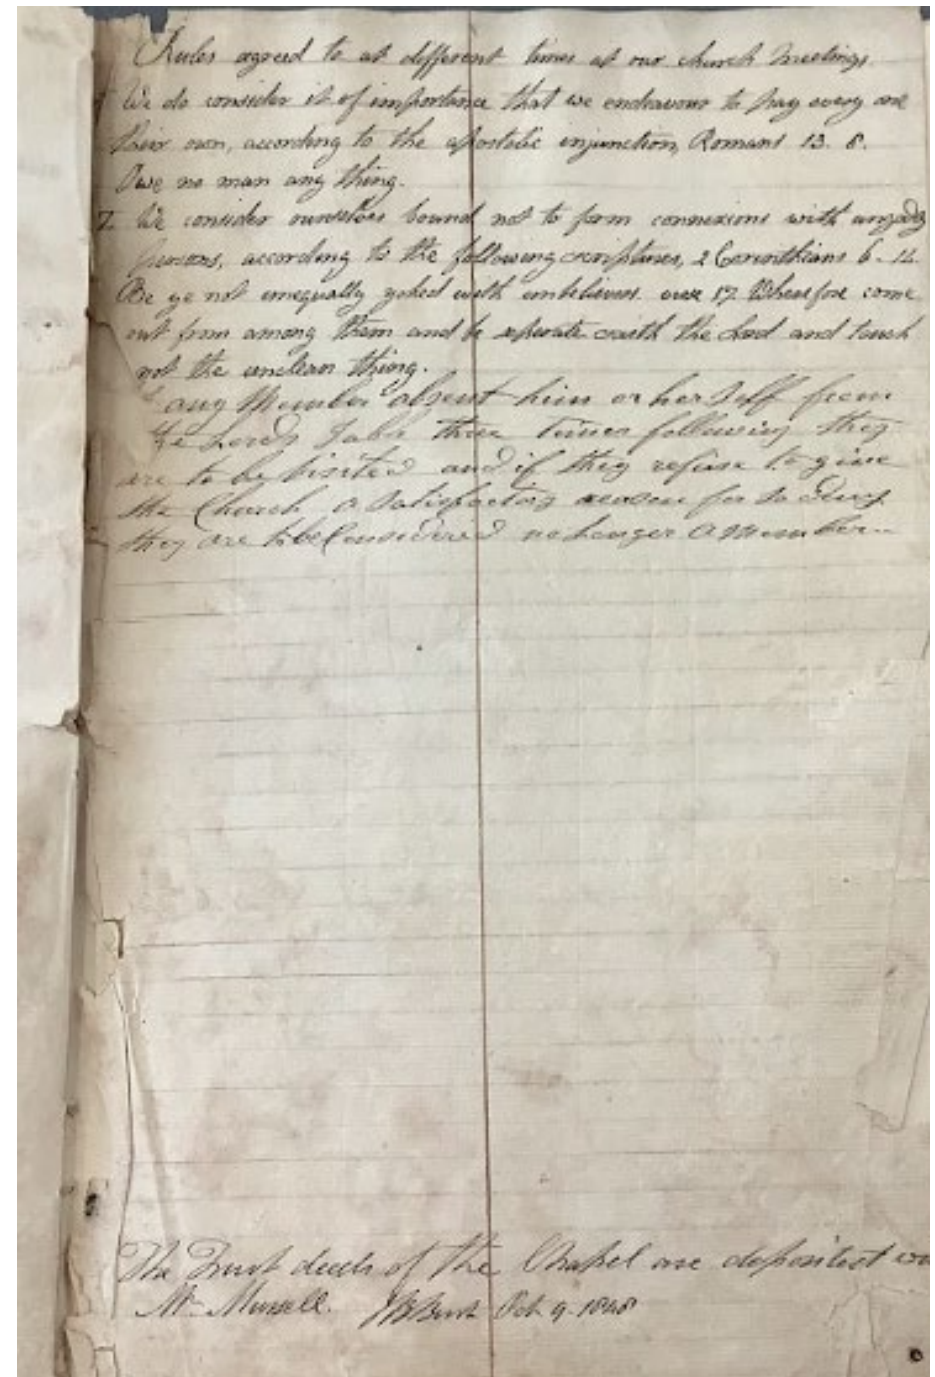 Rules agreed to at different times at our church meetings
1 We do consider it of importance that we endeavour to pay every one
their own, according to the apostolic injunction, Romans 13. 8.
Owe no man any thing.
2. We consider ourselves bound not to form connexions with ungodly
persons, according to the following scriptures, 2 Corinthians 6. 14.
Be ye not unequally yoked with unbelievers. verse 17. Wherefore come
out from among them and be seperate saith the Lord and touch
not the unclean thing.
any Member absent him or her Self from
the Lords Table three times following they
are to be Visited and if they refuse to give
the Church a Satisfactory reason for so doing
they are to be Considered no longer a member
The Trust deeds of the Chapel are deposited
Mr. 9. 1848